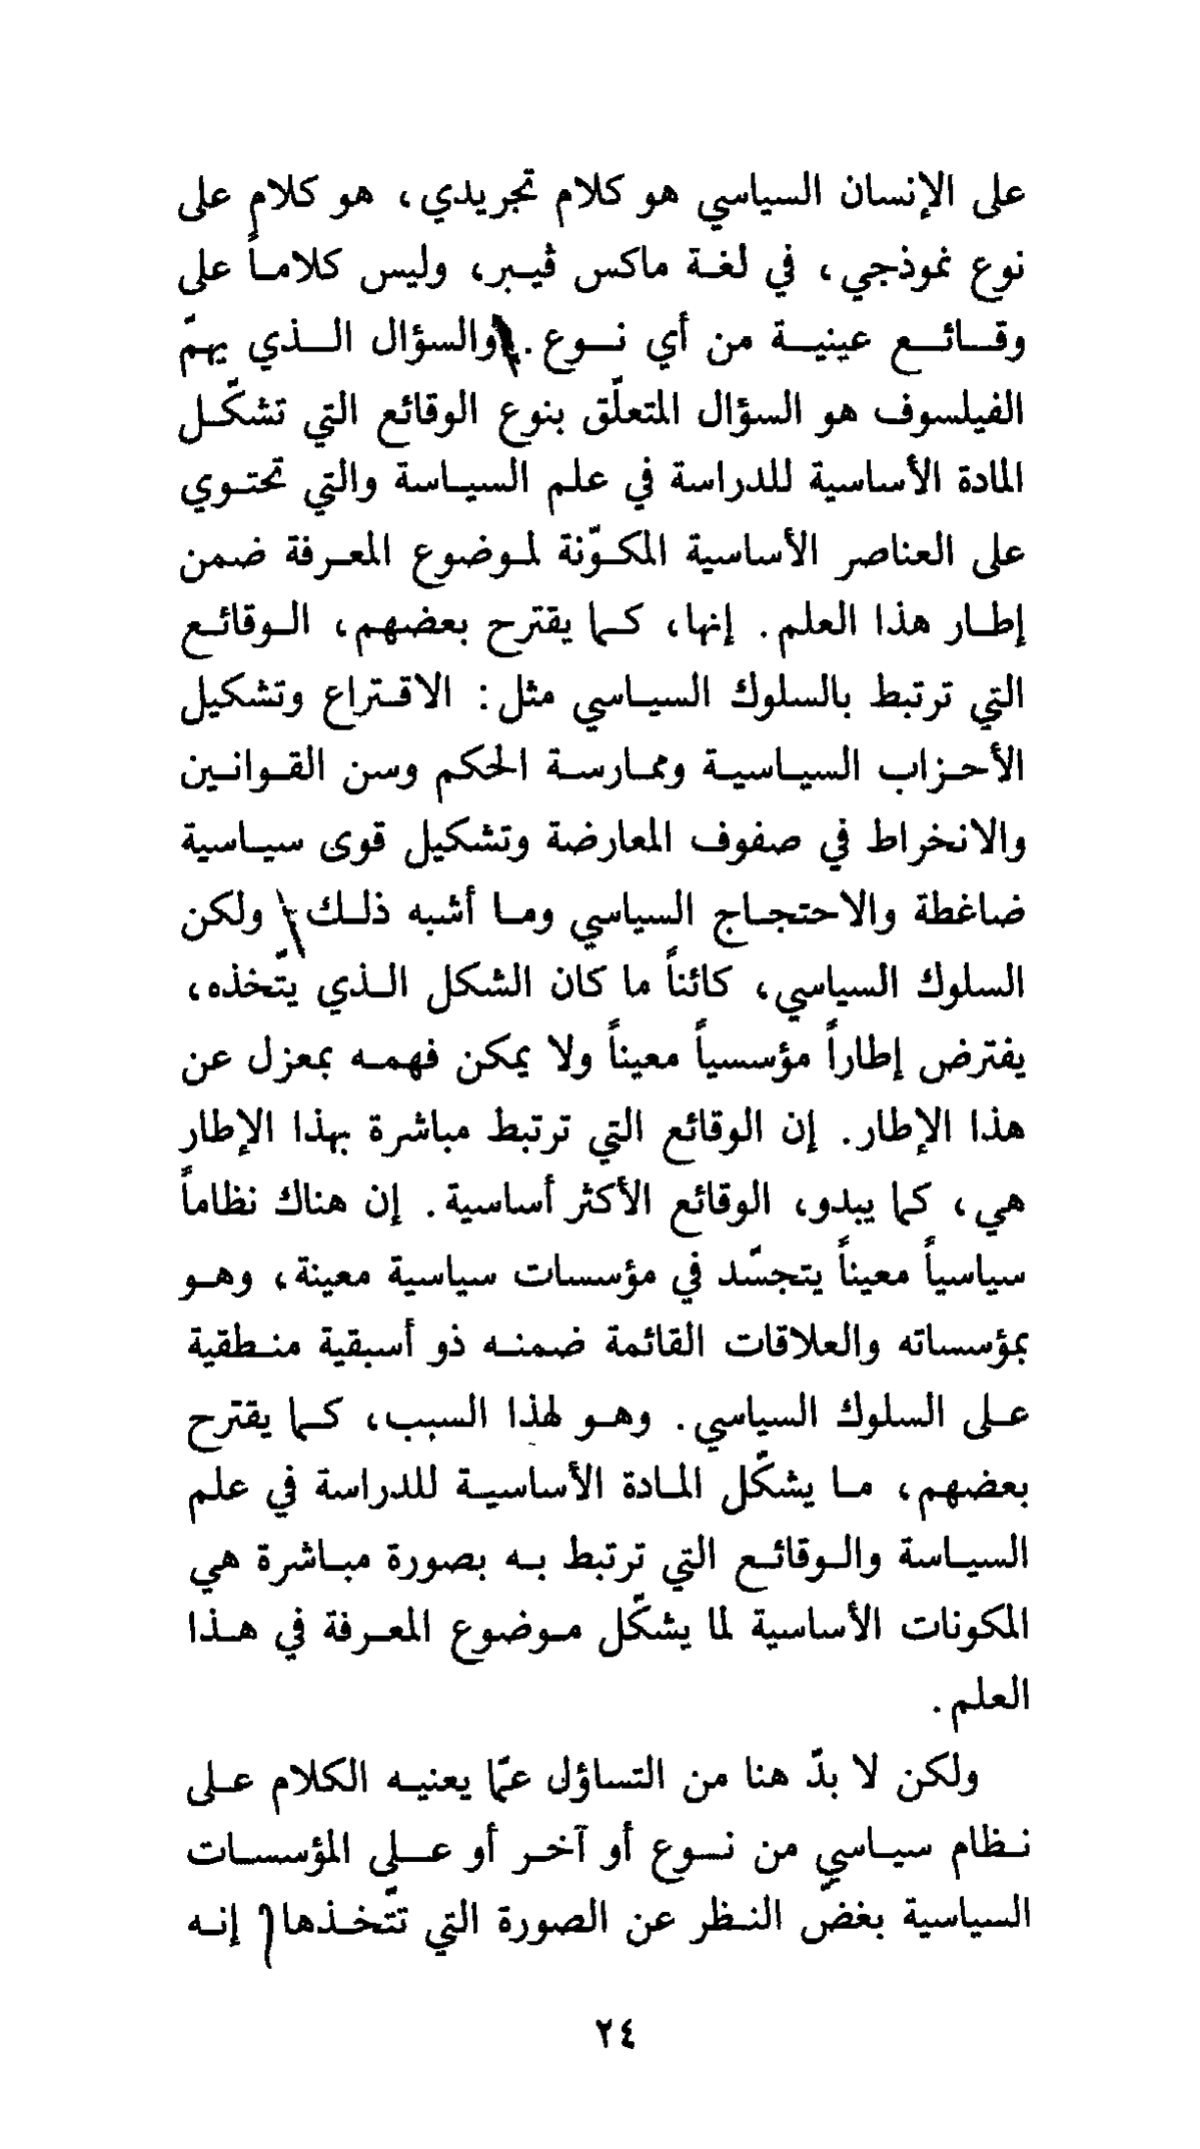 على الإنسان السياسي هو كلام تجريدي، هو كلام على
نوع نموذجي، في لغة ماكس ڤيبر، وليس كلاماً على
وقائع عينية من أي نوع. والسؤال الذي يهمّ
الفيلسوف هو السؤال المتعلّق بنوع الوقائع التي تشكّل
المادة الأساسية للدراسة في علم السياسة والتي تحتوي
على العناصر الأساسية المكوّنة لموضوع المعرفة ضمن
إطار هذا العلم. إنها، كما يقترح بعضهم، الوقائع
التي ترتبط بالسلوك السياسي مثل: الاقتراع وتشكيل
الأحزاب السياسية وممارسة الحكم وسن القوانين
والانخراط في صفوف المعارضة وتشكيل قوى سياسية
ضاغطة والاحتجاج السياسي وما أشبه ذلك ولكن
السلوك السياسي، كائناً ما كان الشكل الذي يتّخذه،
يفترض إطاراً مؤسسياً معيناً ولا يمكن فهمه بمعزل عن
هذا الإطار. إن الوقائع التي ترتبط مباشرة بهذا الإطار
هي، كما يبدو، الوقائع الأكثر أساسية. إن هناك نظاماً
سياسياً معيناً يتجسّد في مؤسسات سياسية معينة، وهو
بمؤسساته والعلاقات القائمة ضمنه ذو أسبقية منطقية
على السلوك السياسي. وهو لهذا السبب، كما يقترح
بعضهم، ما يشكّل المادة الأساسية للدراسة في علم
السياسة والوقائع التي ترتبط به بصورة مباشرة هي
المكونات الأساسية لما يشكّل موضوع المعرفة في هذا
العلم.
ولكن لا بدّ هنا من التساؤل عمّا يعنيه الكلام على
نظام سياسي من نوع أو آخر أو على المؤسسات
السياسية بغضّ النظر عن الصورة التي تتّخذها إنه
٢٤